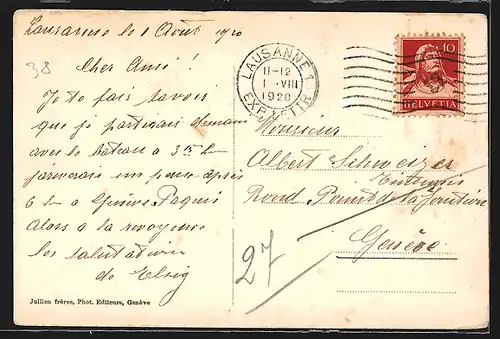 Lausanne le 1 Août 1920
38
Cher Ami!
Je te fais savoir
que je partirais demain
avec le bateau a 3
un peu après
6 h a Genève-Paquis
Alors a la revoyure
les salutations
de Elsig
Jullien frères, Phot. Editeurs, Genève
LAUSANNE 1
11-12
1 VIII
1920
EXP. LETTR.
10
HELVETIA
Monsieur
Albert Schweizer
Rond Point de la Jonction
Genève
27